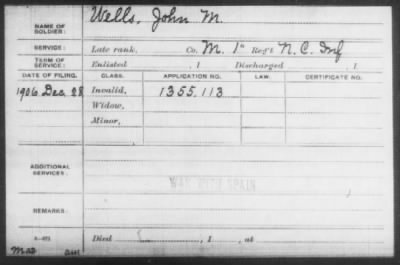 NAME OF SOLDIER: Wells, John M.
SERVICE: Late rank, Co. M. 1st Reg't N.C. Inf
TERM OF SERVICE: Enlisted , 1 Discharged , 1
DATE OF FILING. CLASS. APPLICATION NO. LAW. CERTIFICATE NO.
1906 Dec. 28 Invalid, 1355.113
Widow,
Minor,
ADDITIONAL SERVICES:
WAR WITH SPAIN
REMARKS:
Died , 1 , at